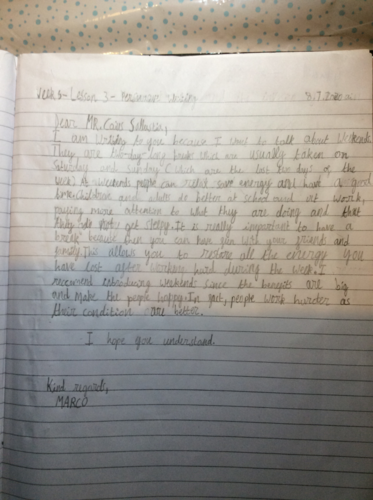 Week 8 - Lesson 3 - Persuasive Writing
Dear MR.
I am writing to you because I want to talk about weekends.
They are two-day long breaks that are usually taken on
Saturday and Sunday which are the last two days of the
week. At weekends people can relax save energy and have a good
time. Children and adults do better at school and at work,
paying more attention to what they are doing and that
they do not get It is really important to have a
break because then you can have fun with your friends and
family. This allows you to restore all the energy you
have lost after working hard during the week. I
recommend weekend since the benefits are big
and make the people happy. In fact, people work harder as
their condition are better.
I hope you understand.
Kind regards,
MARCO